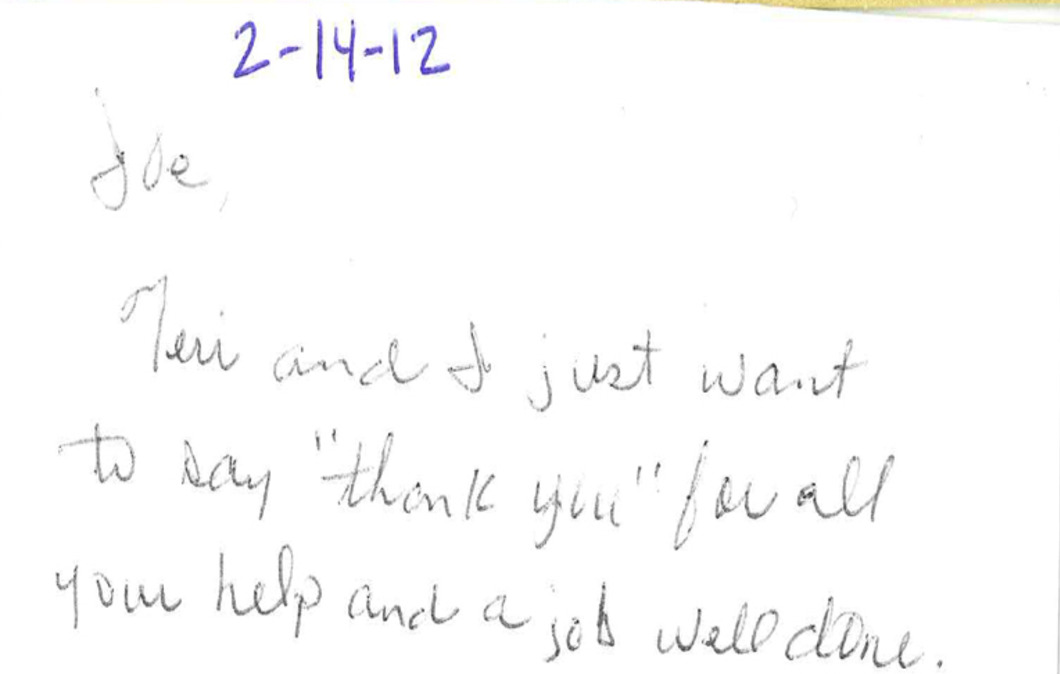 2-14-12
Joe,
Teri and I just want
to say "thank you" for all
your help and a job well done.